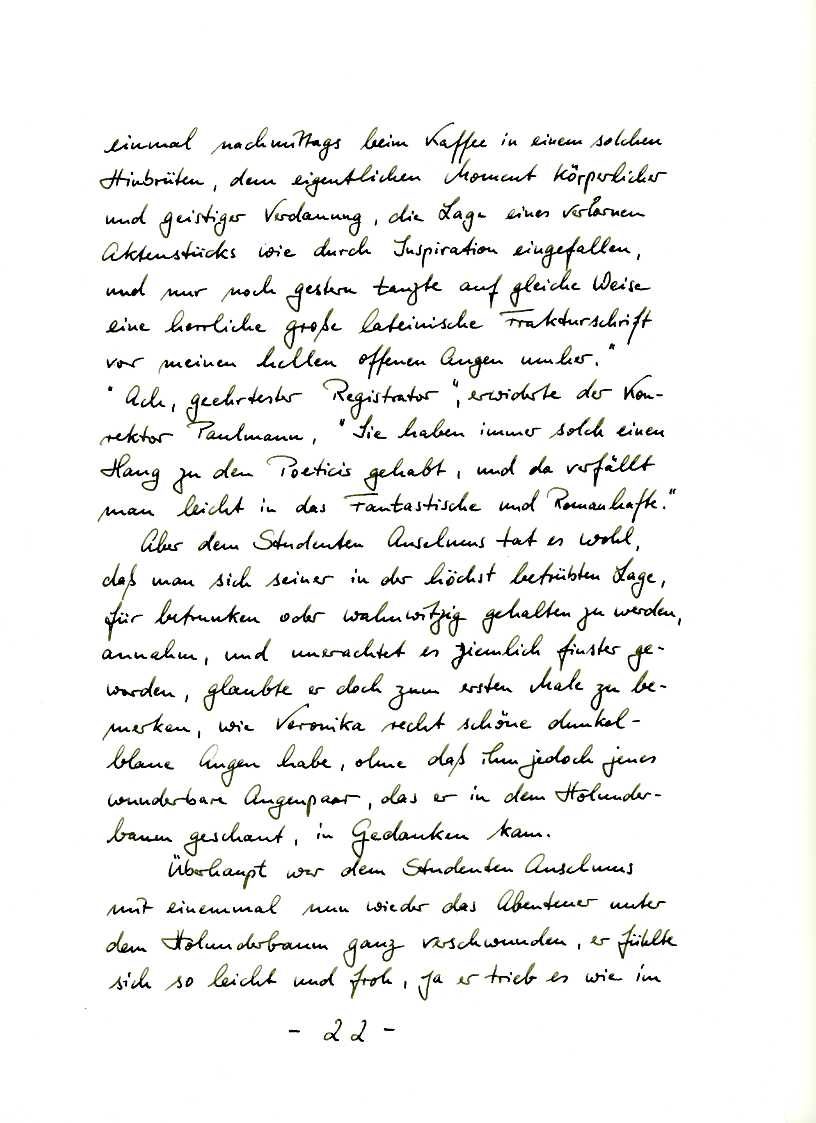 einmal nachmittags beim Kaffee in einem solchen
Hinbrüten, dem eigentlichen Moment körperlicher
und geistiger Verdauung, die Lage eines verlornen
Aktenstücks wie durch Inspiration eingefallen,
und nur noch gestern tanzte auf gleiche Weise
eine herrliche große lateinische Frakturschrift
vor meinen hellen offenen Augen umher."
"Ach, geehrtester Registrator", erwiderte der Kon-
rektor Paulmann, "Sie haben immer solch einen
Hang zu den Poeticis gehabt, und da verfällt
man leicht in das Fantastische und Romanhafte."
Aber dem Studenten Anselmus tat es wohl,
daß man sich seiner in der höchst betrübten Lage,
für betrunken oder wahnwitzig gehalten zu werden,
annahm, und unerachtet es ziemlich finster ge-
worden, glaubte er doch zum ersten Male zu be-
merken, wie Veronika recht schöne dunkel-
blaue Augen habe, ohne daß ihm jedoch jenes
wunderbare Augenpaar, das er in dem Holunder-
baum geschaut, in Gedanken kam.
Überhaupt war dem Studenten Anselmus
mit einemmal nun wieder das Abenteuer unter
dem Holunderbaum ganz verschwunden, er fühlte
sich so leicht und froh, ja er trieb es wie im
- 22 -